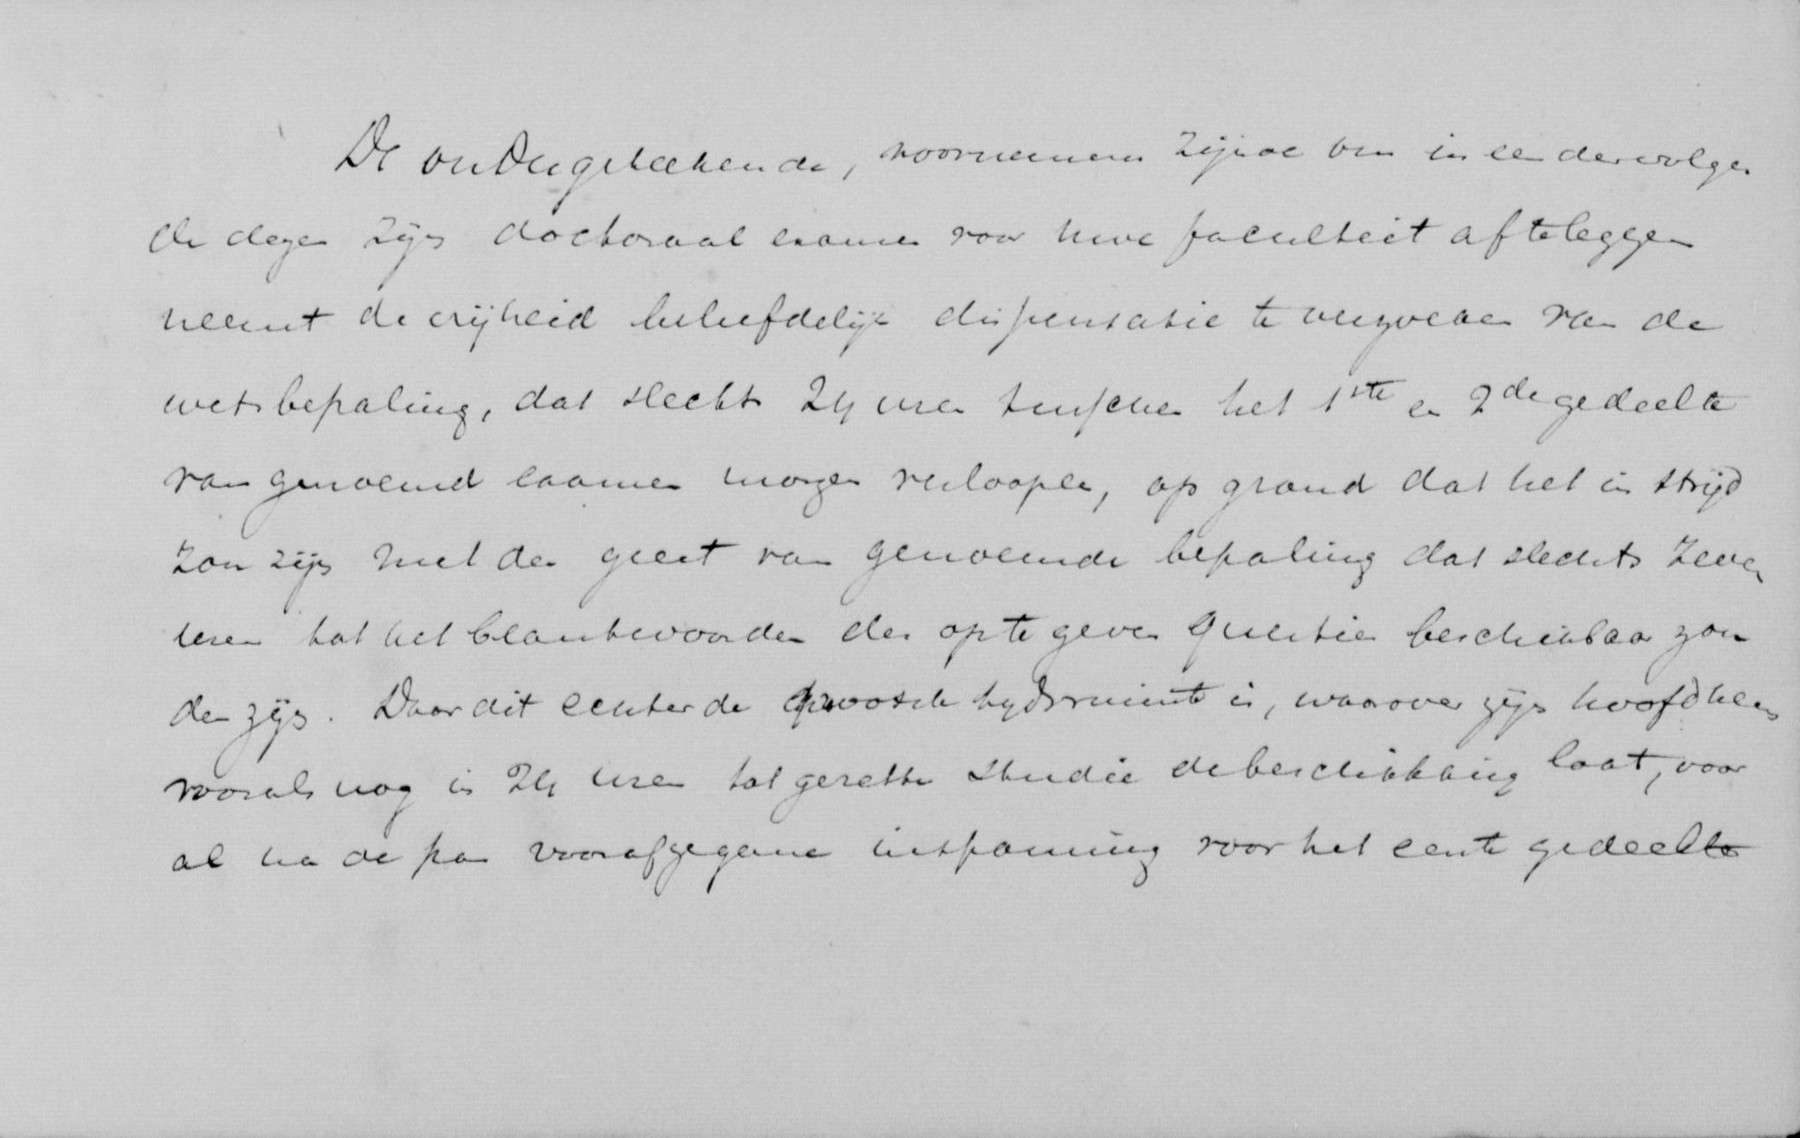 De ondergeteekende, voornemens zijnde om in een der volgen
de dagen zijn doctoraal examen voor uwe faculteit afteleggen
neemt de vrijheid beleefdelijk dispensatie te verzoeken van de
wetsbepaling, dat slechts 24 uren tusschen het 1ste en 2de gedeelte
van genoemd examen mogen verloopen, op grond dat het in strijd
zou zijn met den geest van genoemde bepaling dat slechts zeven
uren tot het beantwoorden der opte geven questien beschikbaar zou
den zijn. Daar dit echter de grootste tydsruimte is, waarover zijn hoofd hem
vooralsnog in 24 uren tot gezette studie de beschikking laat, voor
al na de pas voorafgegane inspanning voor het eerste gedeelte